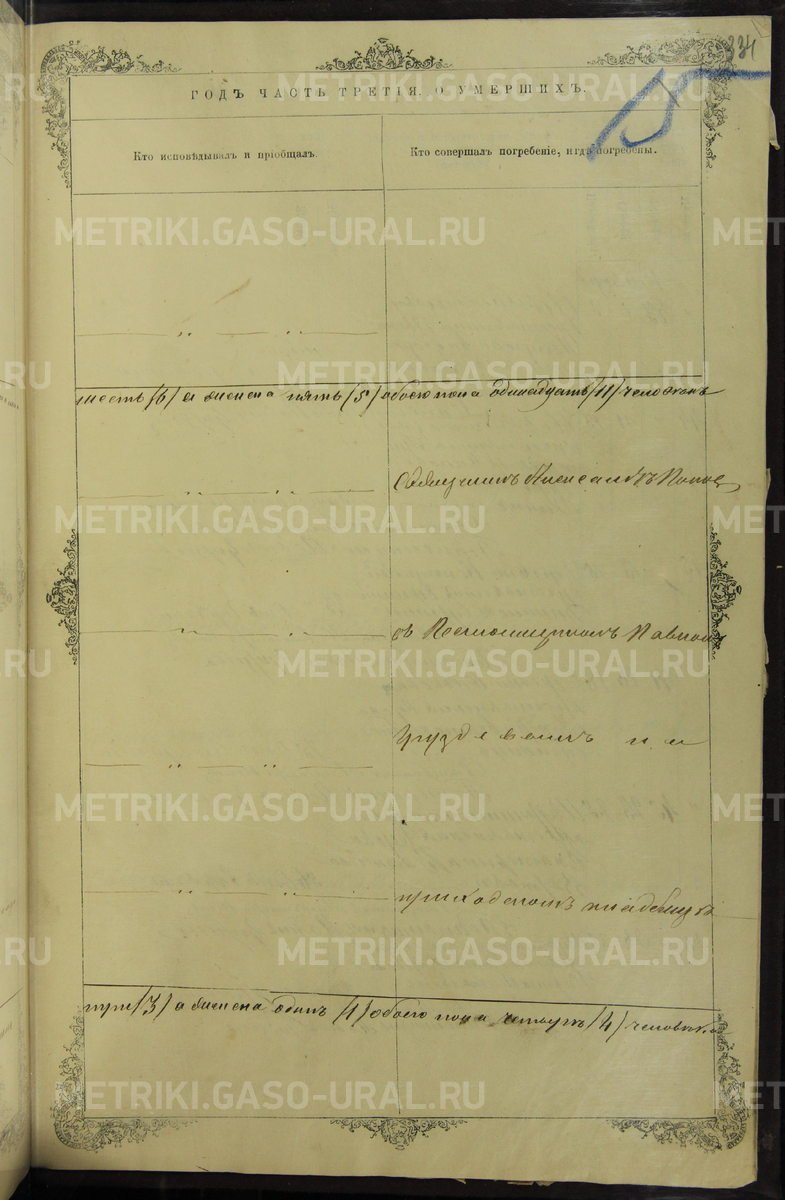 334
ГОДЪ ЧАСТЬ ТРЕТІЯ, О УМЕРШИХЪ.
Кто исповѣдывалъ и пріобщалъ.
Кто совершалъ погребеніе, и гдѣ погребены.
METRIKI.GASO-URAL.RU
шесть /6/ а женска пять /5/ обоего пола одинадцать /11/ человѣкъ
Священникъ Александръ Попов
съ Псаломщикомъ Павломъ
Груздевымъ на
приходскомъ кладбищѣ
три /3/ а женска одинъ /1/ обоего пола четыре /4/ человѣка